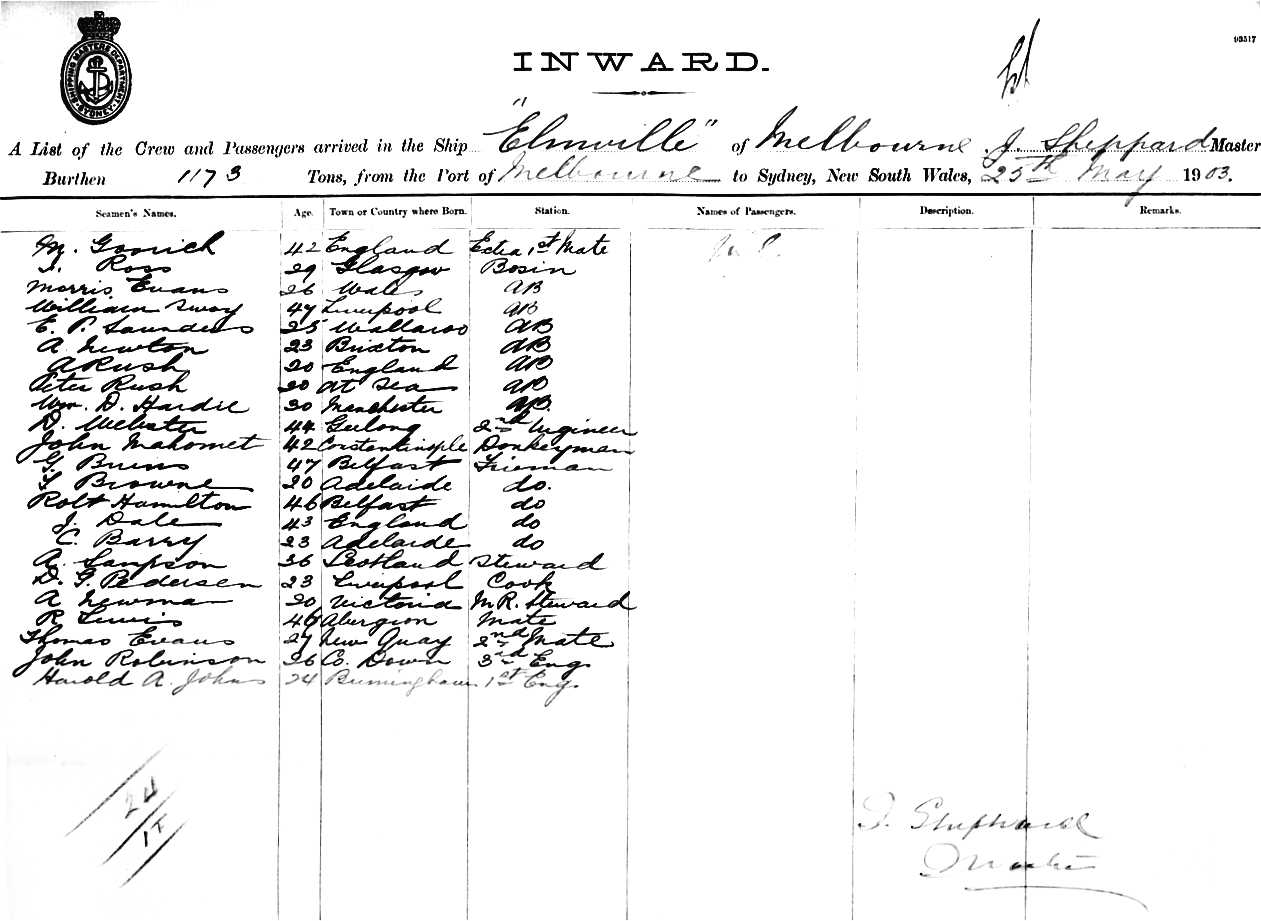 SHIPPING MASTERS DEPARTMENT SYDNEY
93517
INWARD.
A List of the Crew and Passengers arrived in the Ship "Elmville" of Melbourne J. Sheppard Master
Burthen 1173 Tons, from the Port of Melbourne to Sydney, New South Wales, 25th May 1903.
Seamen's Names. Age. Town or Country where Born. Station. Names of Passengers. Description. Remarks.
M. 42 England Extra 1st Mate
Ross 29 Glasgow Bosin
Morris Evans 26 Wales AB
William Sway 47 Liverpool AB
E. P. Saunders 25 Wallaroo AB
A. Newton 23 Brixton AB
A Rush 20 England AB
Peter Rush 20 At Sea AB
Wm. D. Hardie 30 Manchester AB.
D. Webster 44 Geelong 2nd Engineer
John Mahomet 42 Constantinople Donkeyman
G. Burns 47 Belfast Fireman
Browne 20 Adelaide do.
Robt Hamilton 46 Belfast do
J. Dale 43 England do
C. Barry 23 Adelaide do
A. Sampson 36 Scotland Steward
D. G. Pedersen 23 Liverpool Cook
A Newman 20 Victoria M.R. Steward
R Lewis 46 Mate
Thomas Evans 27 New Quay 2nd Mate
John Robinson 26 Co. Down 3rd Eng.
Harold A. Johns 24 Birmingham 1st Eng.
24
J. Shephard
Master